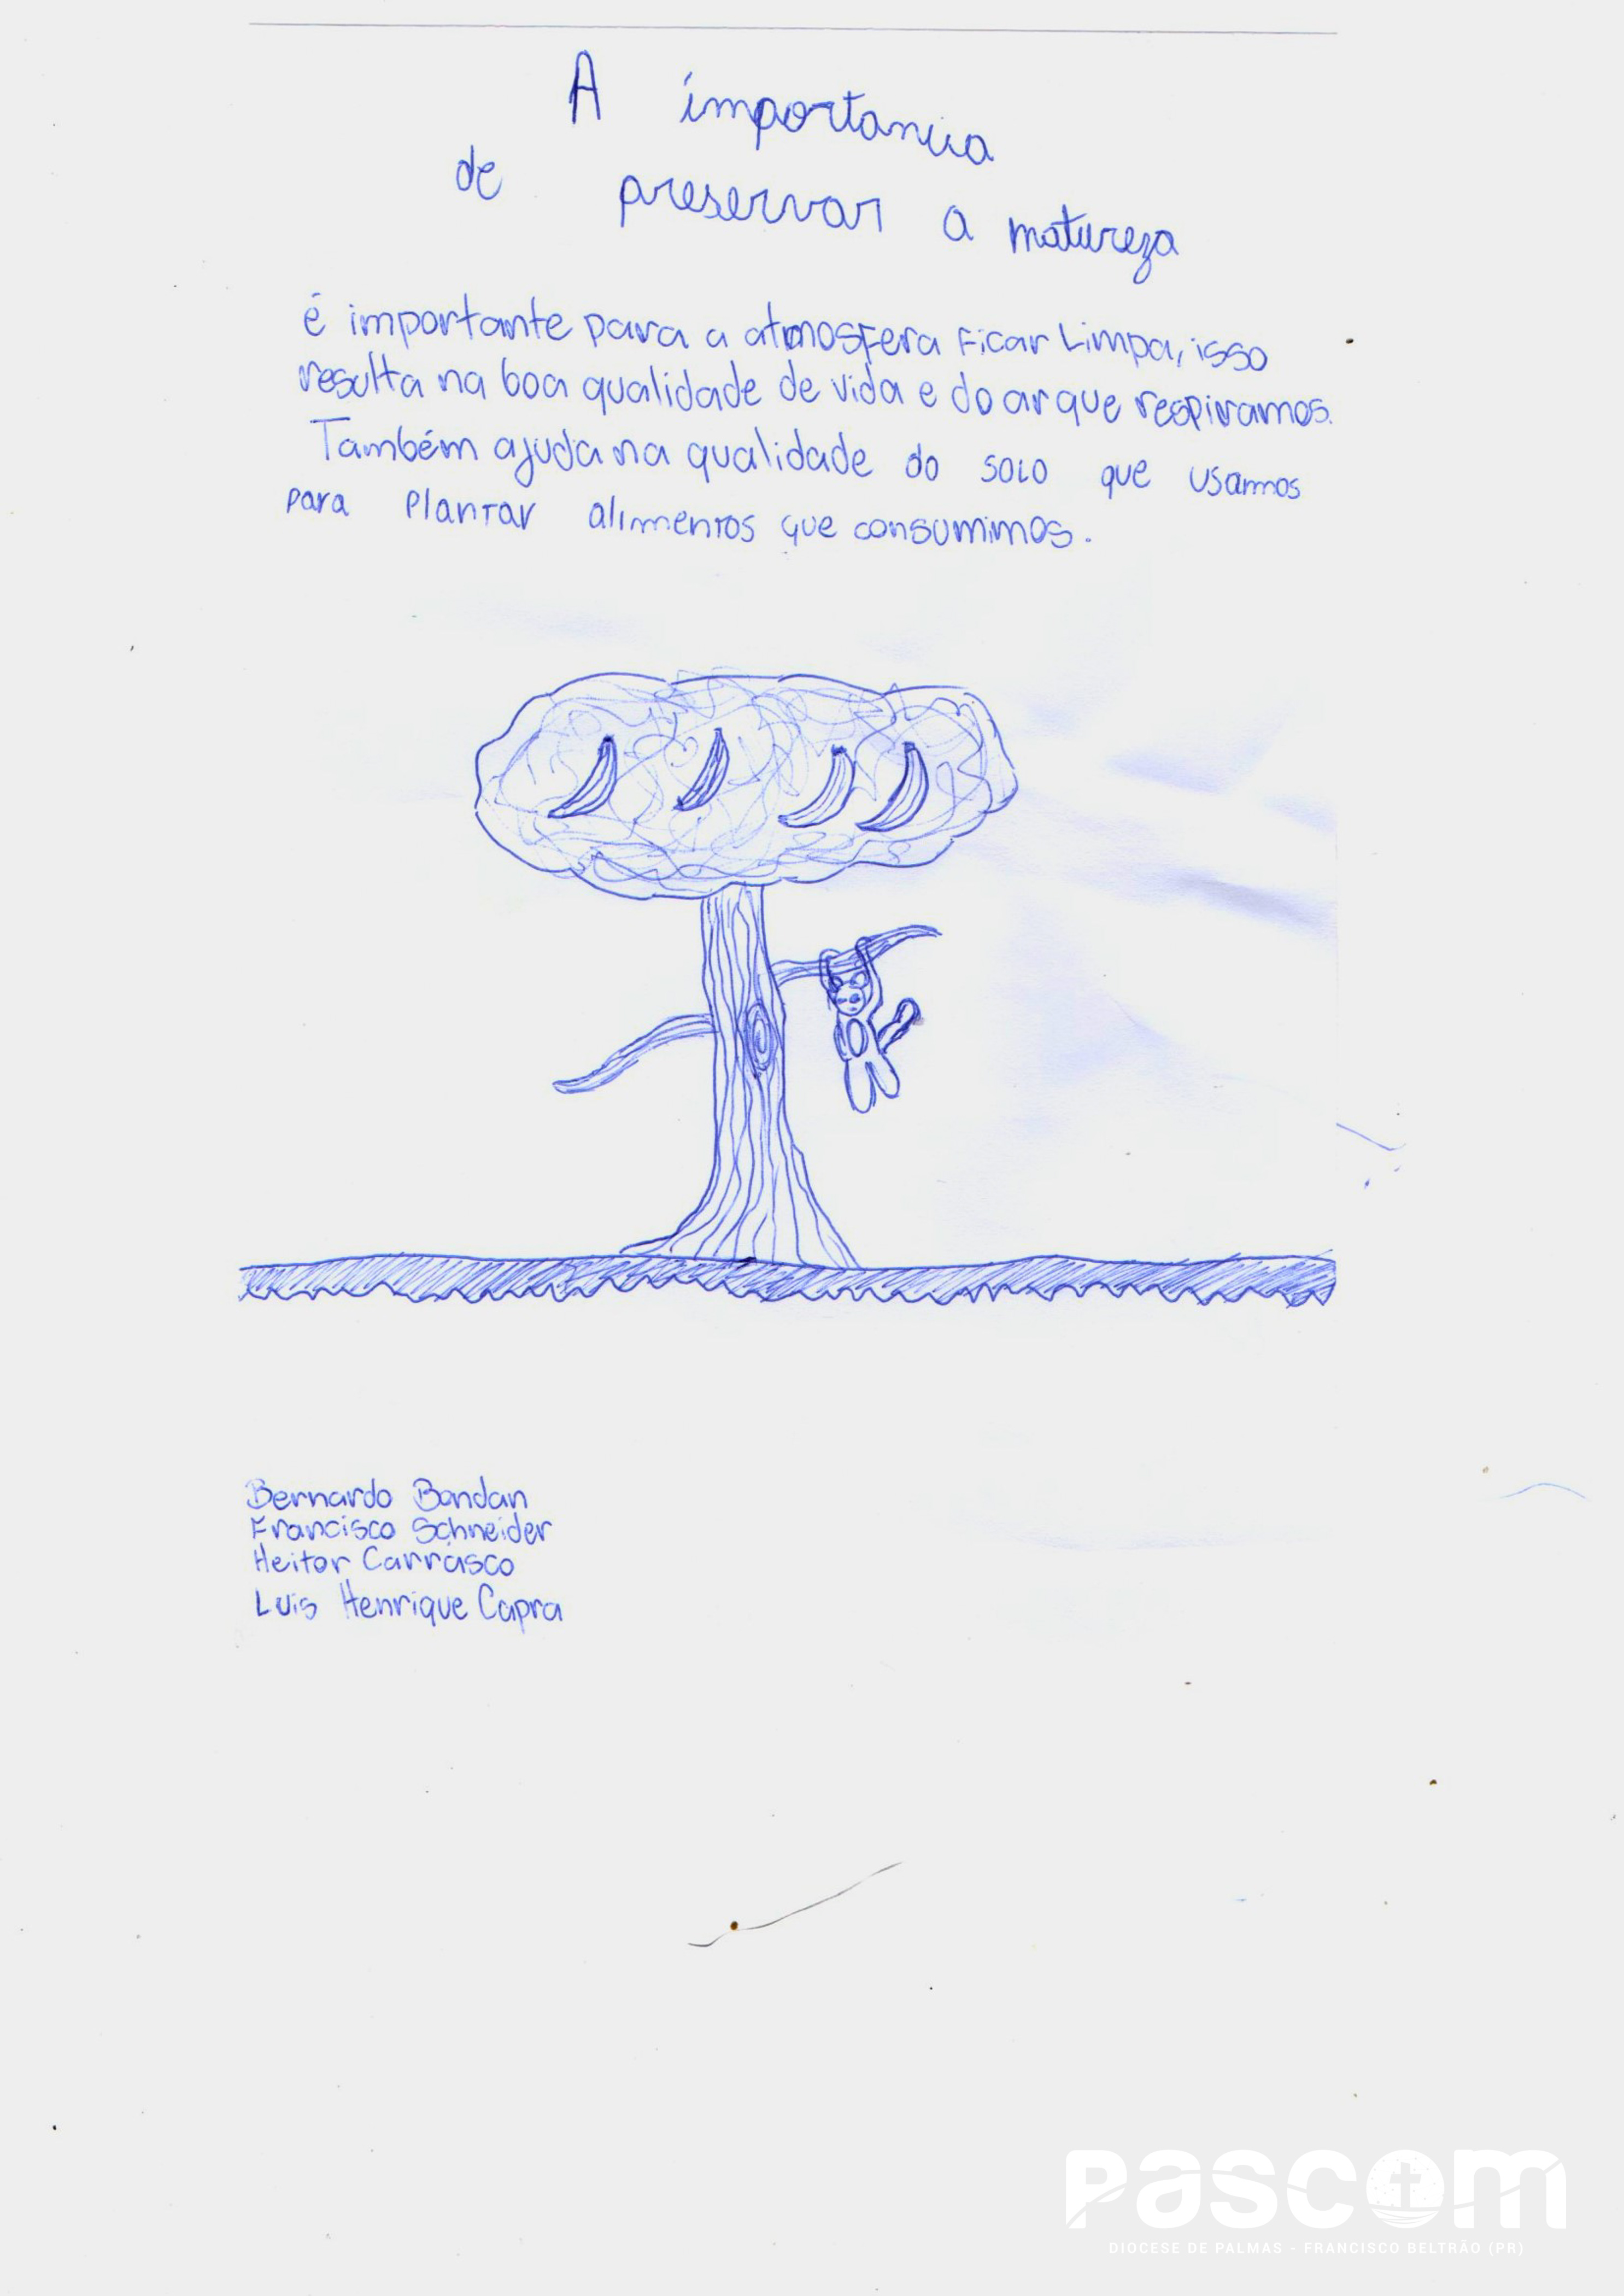 A importancia
de preservar a natureza
é importante para a atmosfera Ficar Limpa, isso
resulta na boa qualidade de vida e do ar que respiramos.
Também ajuda na qualidade do solo que usamos
para Plantar alimentos que consumimos.
Bernardo Bandan
Francisco Schneider
Heitor Carrasco
Luis Henrique Capra
PASCOM
DIOCESE DE PALMAS - FRANCISCO BELTRÃO (PR)